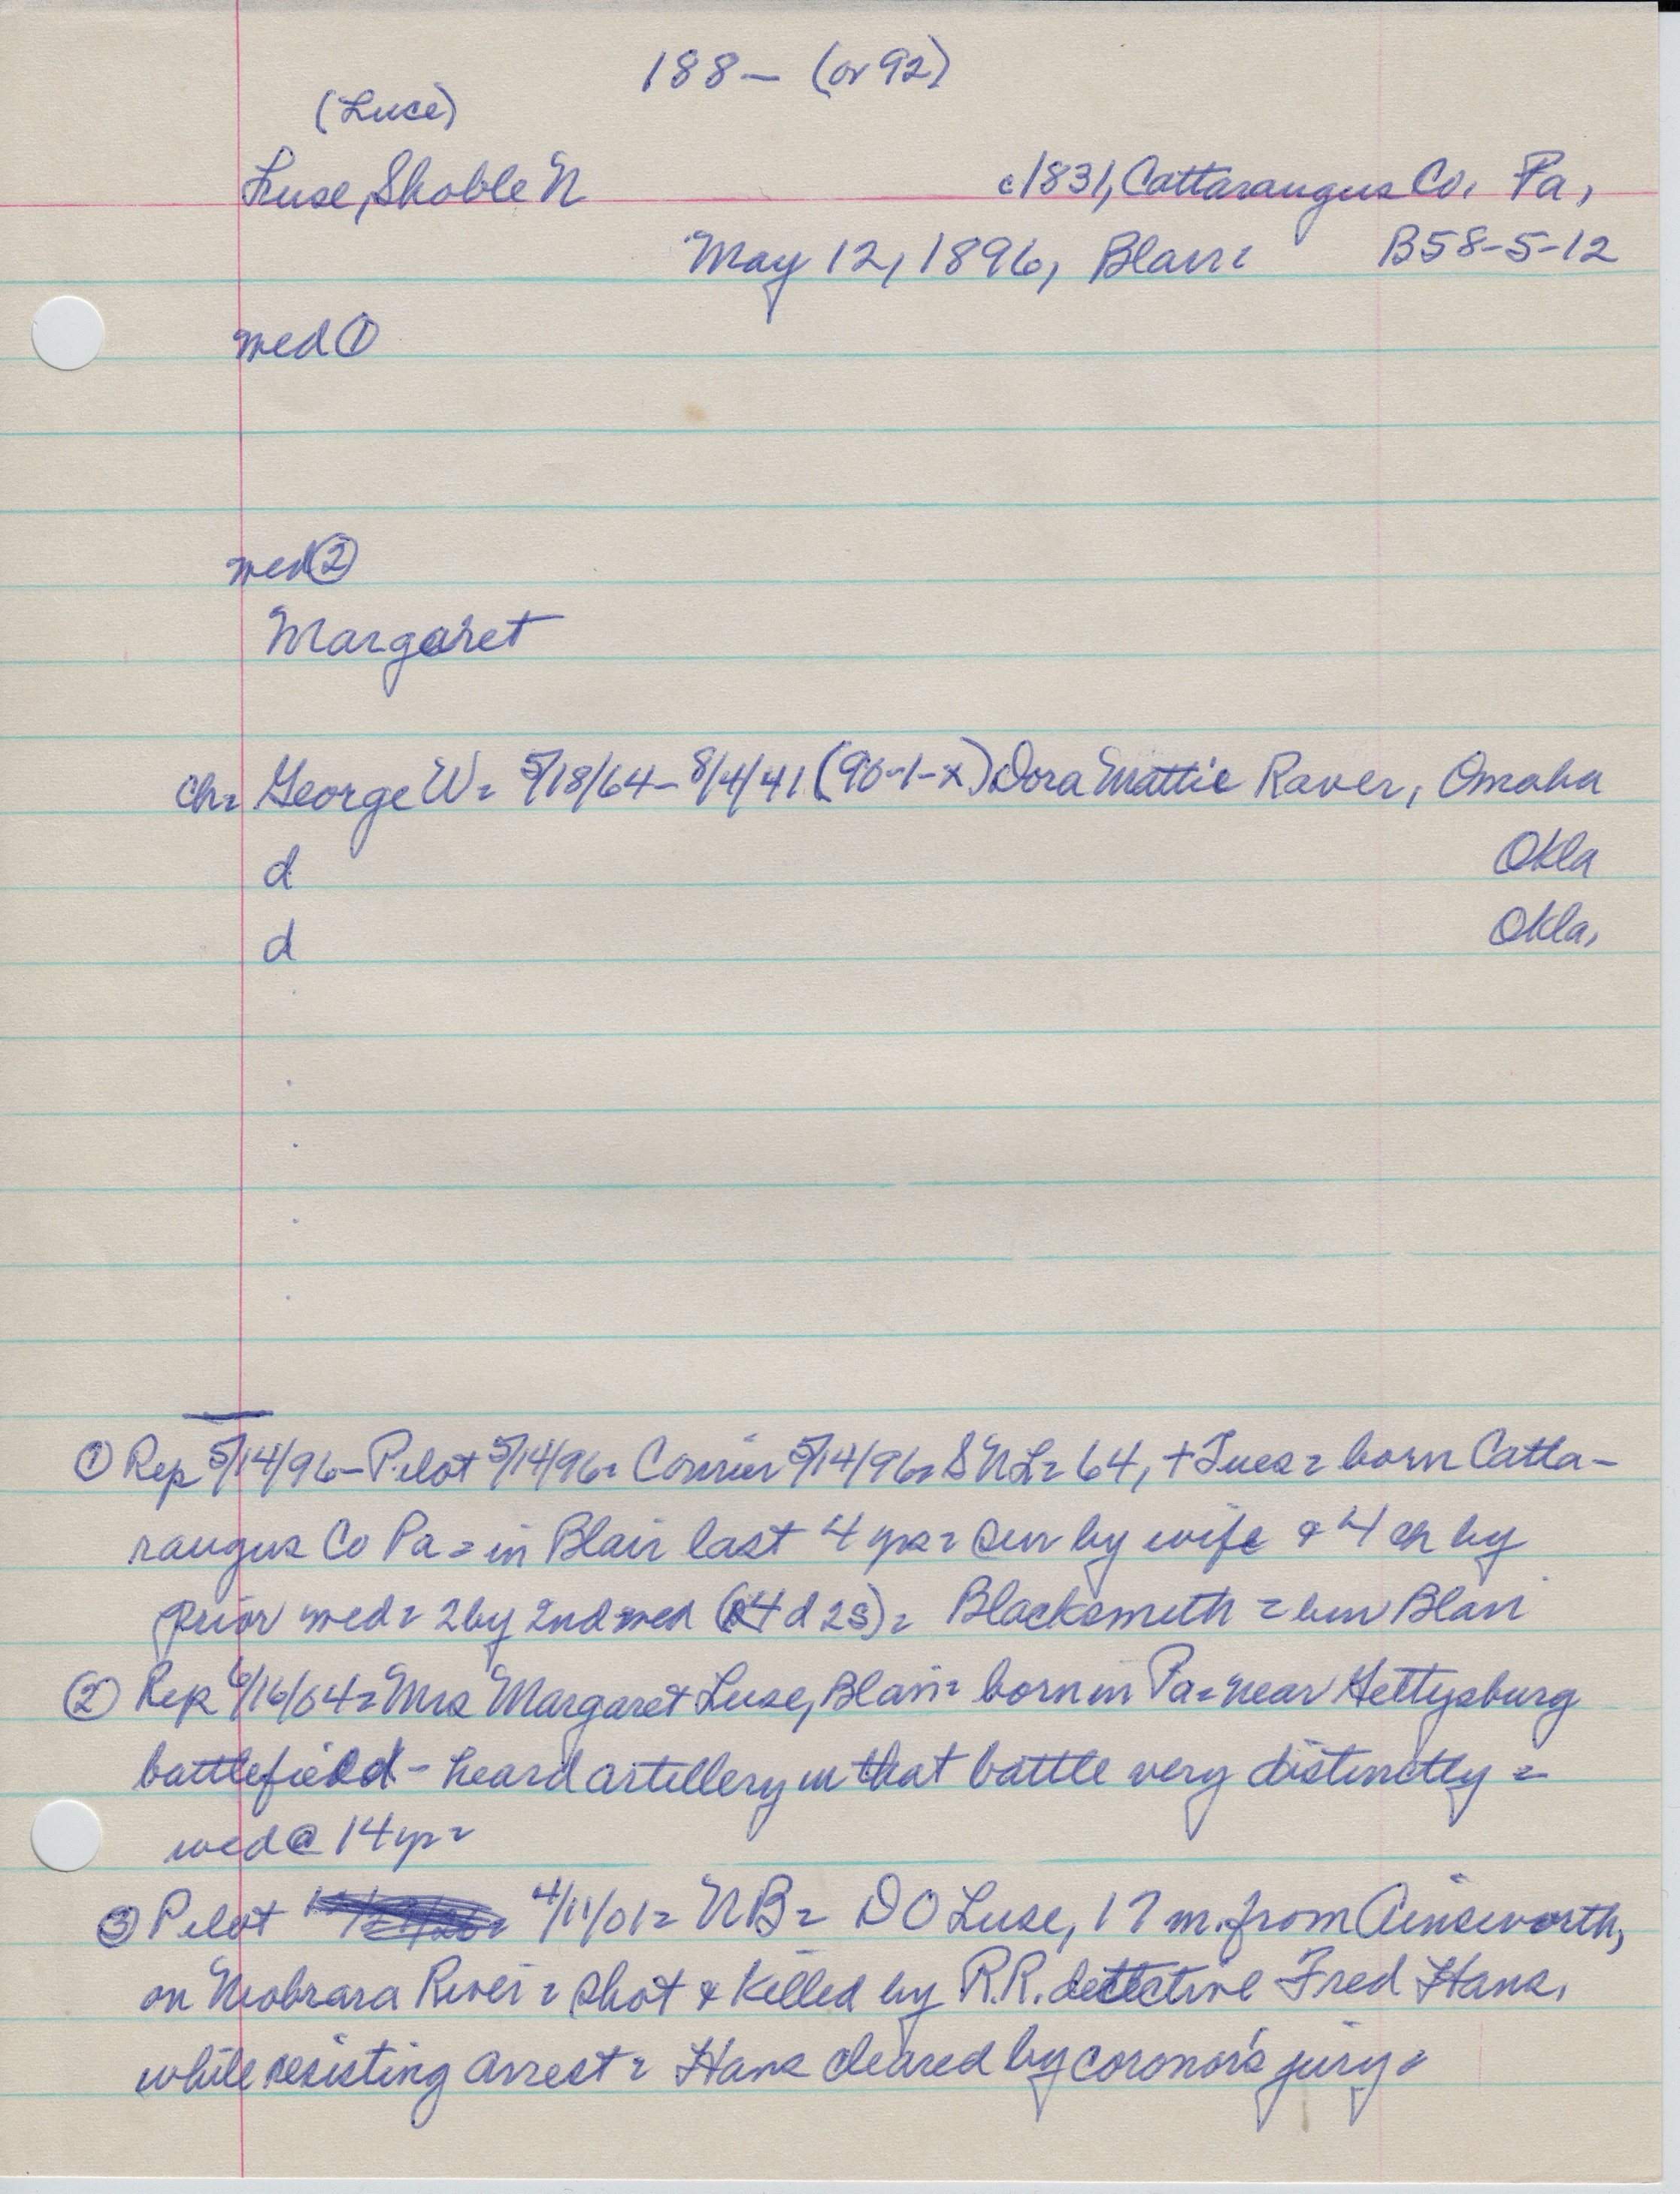 188— (or 92)
(Luce)
Luse, Shoble N c1831, Cattaraugus Co. Pa,
May 12, 1896, Blair= B58-5-12
wed ①
wed ②
Margaret
Ch= George W= 5/18/64–8/4/41 (90-1-x) Dora Mattie Raver, Omaha
d Okla
d Okla,
① Rep 5/14/96– Pilot 5/14/96= Courier 5/14/96= SNL= 64, + Tues= born Catta-
raugus Co Pa = in Blair last 4 yrs= sur by wife & 4 ch by
prior wed= 2 by 2nd wed (4 d 2s)= Blacksmith = bur Blair
② Rep 6/16/04= Mrs Margaret Luse, Blair= born in Pa= near Gettysburg
battlefield – heard artillery in that battle very distinctly =
wed @ 14 yr=
③ Pilot 4/11/01= NB= D O Luse, 17 m. from Ainsworth,
on Niobrara River= shot & killed by R.R. detective Fred Hans,
while resisting arrest= Hans cleared by coronor's jury=